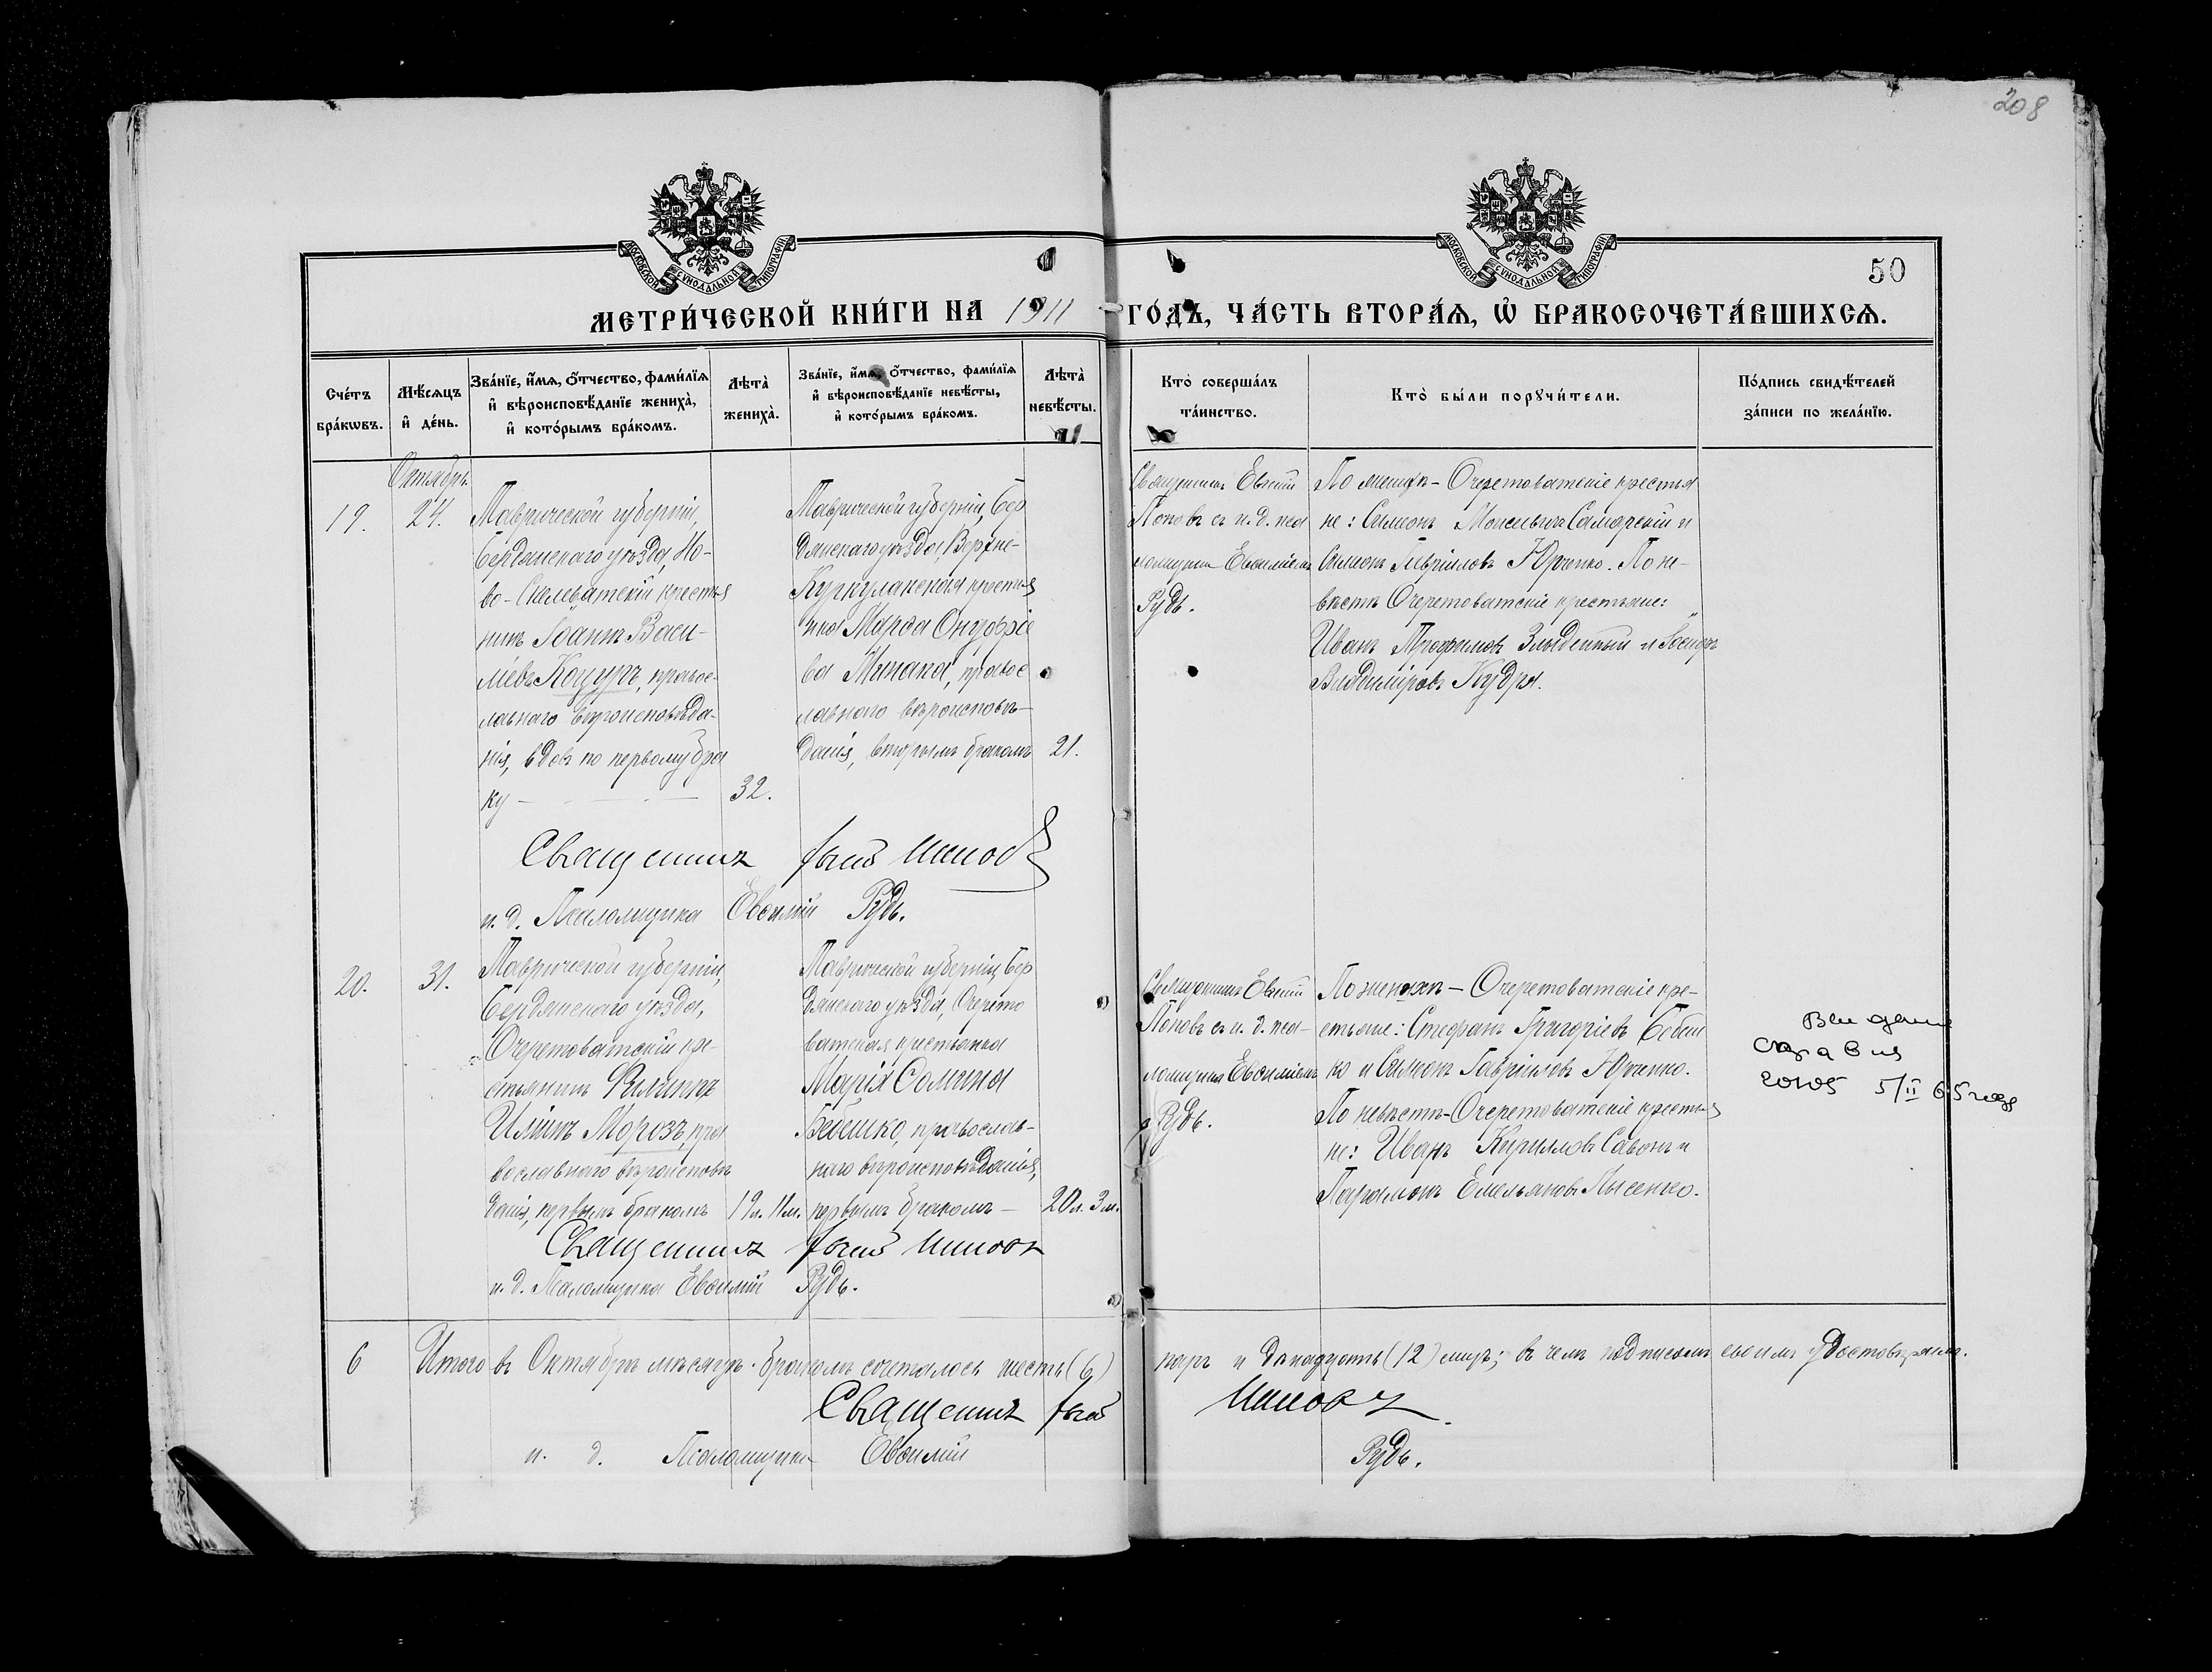 208
МОСКОВСКОЙ СУНОДАЛЬНОЙ ТИПОГРАФІИ
МОСКОВСКОЙ СУНОДАЛЬНОЙ ТИПОГРАФІИ
50
МЕТРИ́ЧЕСКОЙ КНИ́ГИ НА 1911 ГО́ДЪ, ЧА́СТЬ ВТОРА́Я, Ѡ҆ БРАКОСОЧЕТА́ВШИХСЯ.
Сче́тъ
бра́кωвъ.
Мѣ́сяцъ
и҆ де́нь.
Зва́нїе, и҆́мя, ѻ҆́тчество, фами́лїя
и҆ вѣроисповѣ́данїе жениха̀,
и҆ кото́рымъ бра́комъ.
Лѣта̀
жениха̀.
Зва́нїе, и҆́мя, ѻ҆́тчество, фами́лїя
и҆ вѣроисповѣ́данїе невѣ́сты,
и҆ кото́рымъ бра́комъ.
Лѣта̀
невѣ́сты.
Кто̀ соверша́лъ
та́инство.
Кто̀ бы́ли порꙋчи́тели.
По́дпись свидѣ́телей
за́писи по жела́нїю.
Октябрь
19.
24.
Таврической губерніи,
Бердянскаго уѣзда, Но-
во-Скелеватскій крестья
нинъ Іоаннъ Васи-
ліевъ Коцуръ, правос-
лавнаго вѣроисповѣда-
нія, вдовъ по первому бра
ку —
32.
Таврической губерніи, Бер
дянскаго уѣзда, Верхне-
Куркулакская крестья
нка Марѳа Онуфріе
ва Минака, правос
лавнаго вѣроисповѣ-
данія, вторымъ бракомъ
21.
Священникъ Евѳимій
Поповъ съ и. д. пса
ломщика Евѳиміемъ
Рудь.
По женихѣ – Очеретоватскіе крестья
не: Симеонъ Моисеевичъ Самарскій и
Симонъ Гавріиловъ Юрченко. По не-
вѣстѣ Очеретоватскіе крестьяне:
Иванъ Трофимовъ Злыденный и Іосифъ
Владиміровъ Кудря.
Священникъ Поповъ
и. д. Псаломщика Евѳимій Рудь.
20.
31.
Таврической губерніи,
Бердянскаго уѣзда,
Очеретоватскій кре-
стьянинъ Филиппъ
Иліинъ Морозъ, пра
вославнаго вѣроисповѣ
данія, первымъ бракомъ
19 л. 11 м.
Таврической губерніи, Бер
дянскаго уѣзда, Очерето
ватская крестьянка
Марія Сомина
Бебешко, православ-
наго вѣроисповѣданія,
первымъ бракомъ —
20 л. 3 м.
Священникъ Евѳимій
Поповъ съ и. д. пса-
ломщика Евѳиміемъ
Рудь.
По женихѣ – Очеретоватскіе кре-
стьяне: Стефанъ Григоріевъ Бебеш
ко и Симонъ Гавріиловъ Юрченко.
По невѣстѣ – Очеретоватскіе крестья
не: Иванъ Кирилловъ Савонъ и
Парамонъ Емельяновъ Лысенко.
5/II 65 года
Священникъ Поповъ
и. д. Псаломщика Евѳимій Рудь.
6
Итого въ Октябрѣ мѣсяцѣ бракомъ сочеталось шесть (6) паръ и двѣнадцать (12) лицъ; въ чемъ подписомъ своимъ удостовѣряемъ.
Священникъ Поповъ
и. д. Псаломщика Евѳимій Рудь.